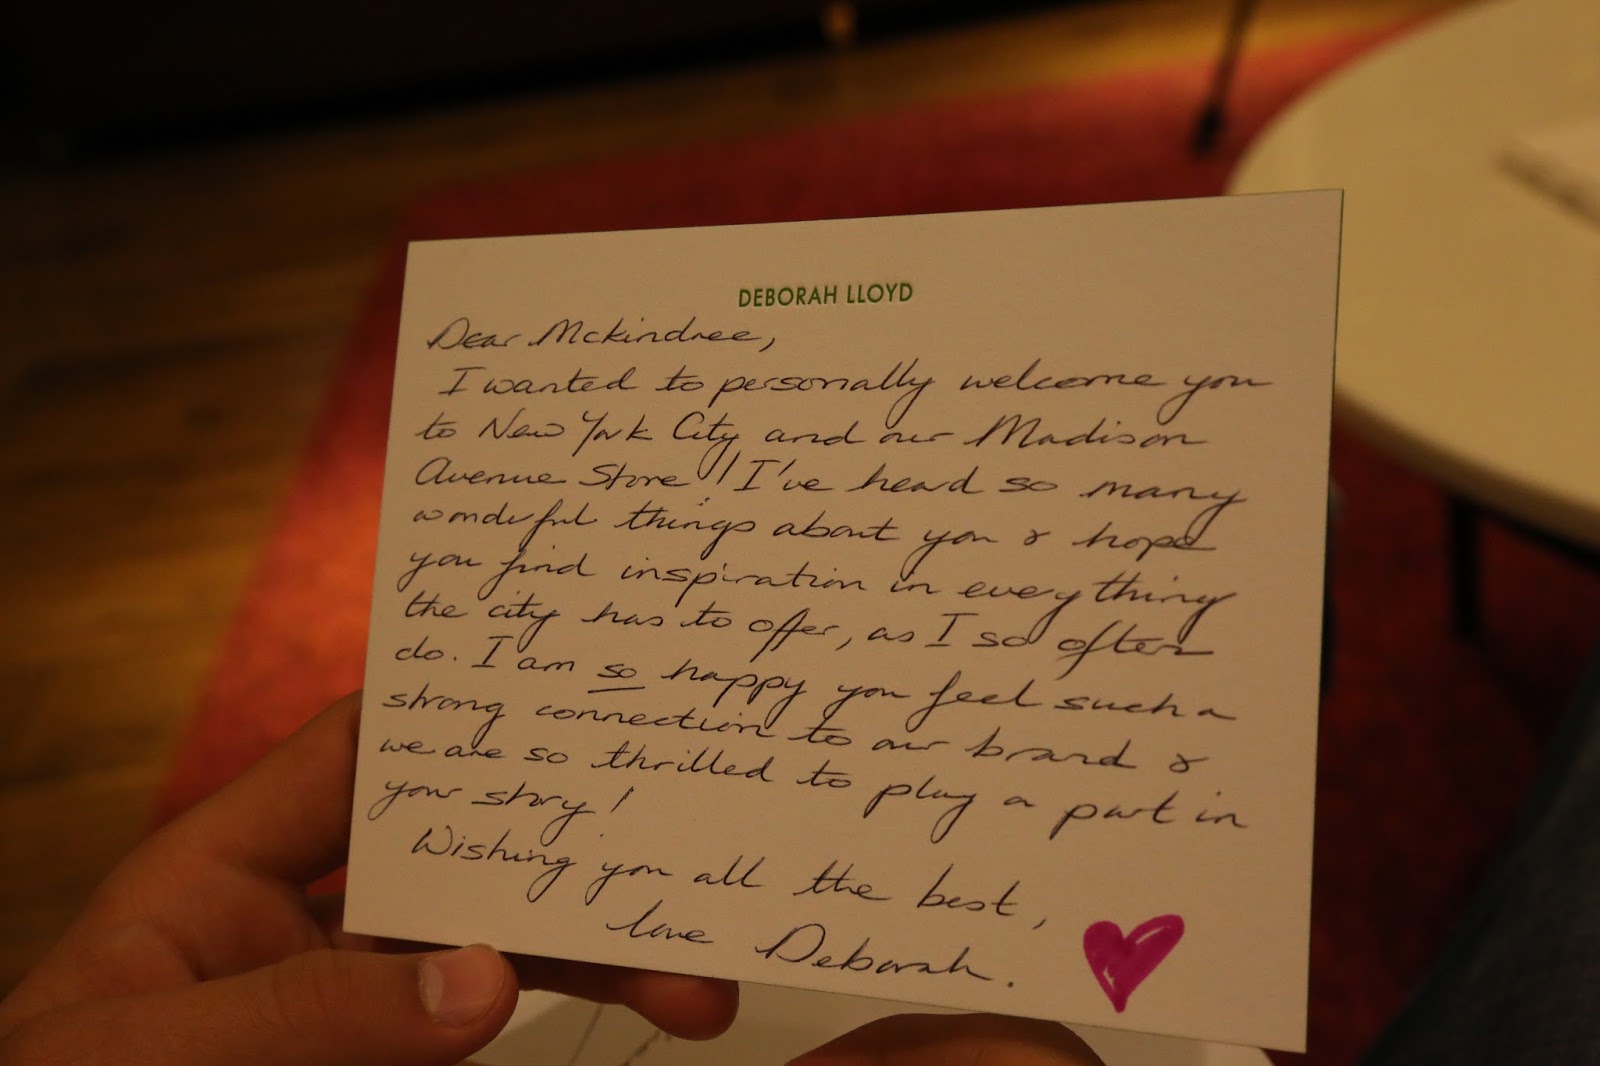 DEBORAH LLOYD
Dear Mckindree,
I wanted to personally welcome you
to New York City and our Madison
Avenue Store! I've heard so many
wonderful things about you & hope
you find inspiration in everything
the city has to offer, as I so often
do. I am so happy you feel such a
strong connection to our brand &
we are so thrilled to play a part in
your story!
Wishing you all the best,
love Deborah.